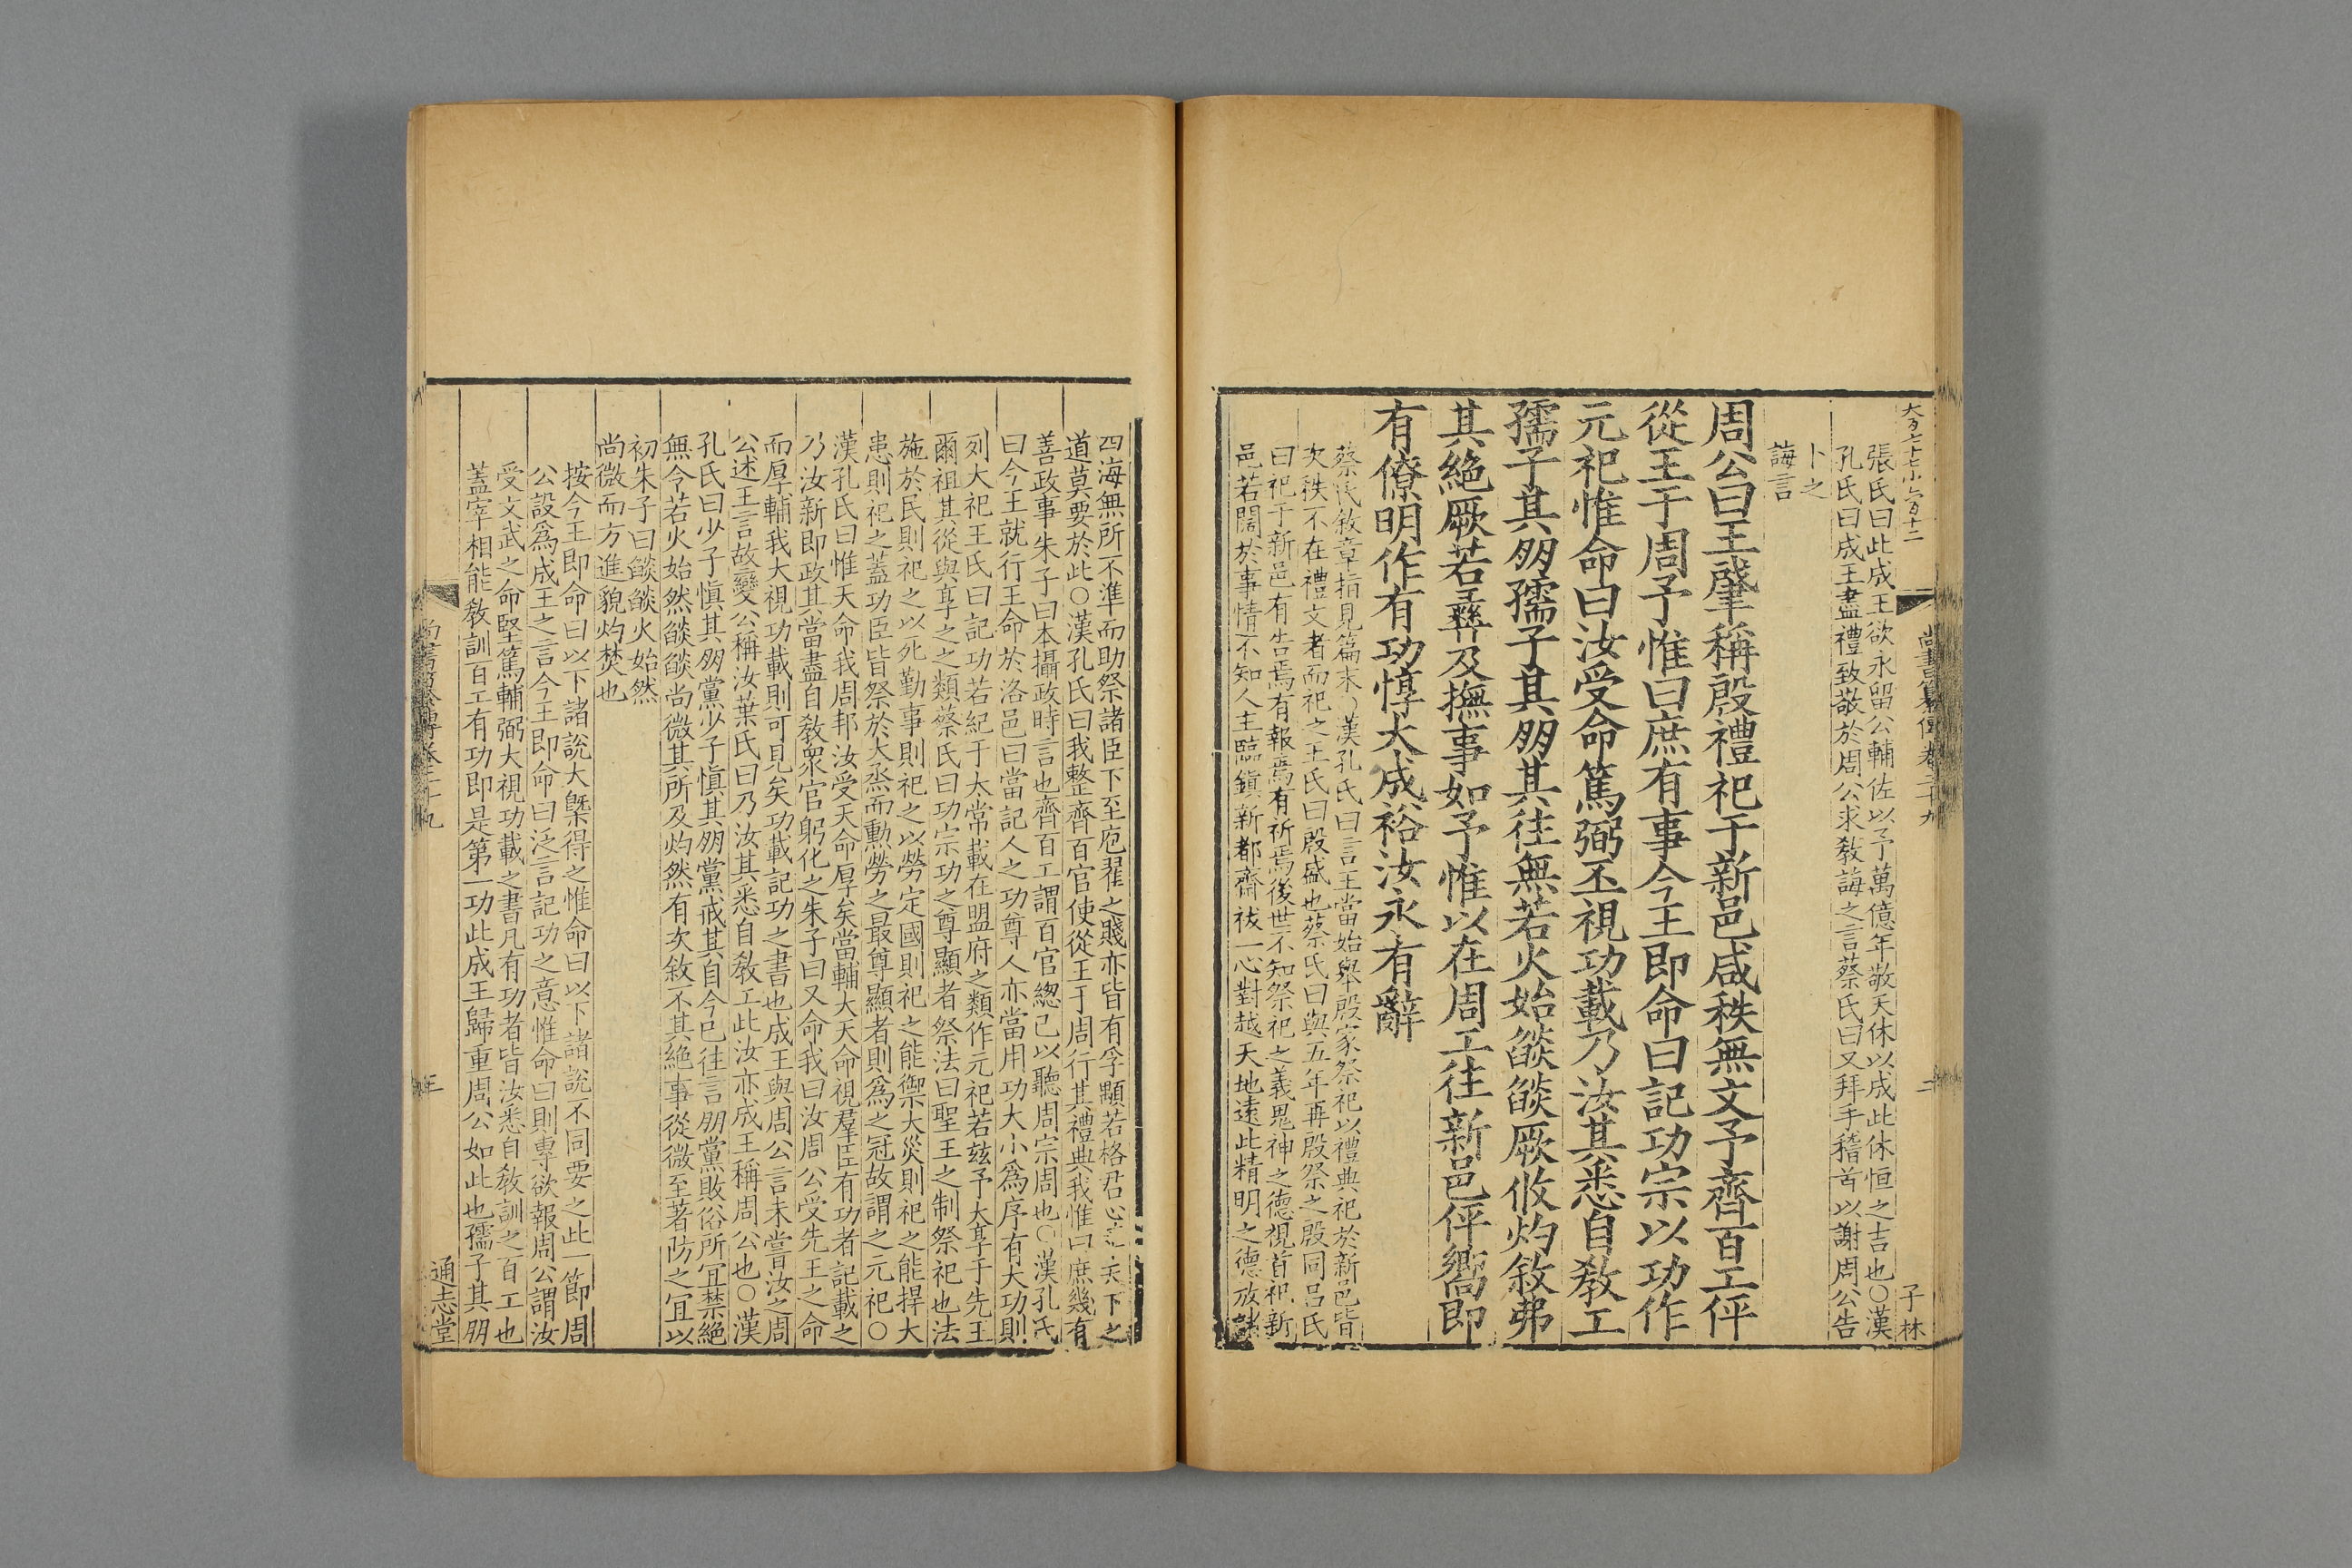 大百七十七小六百十二
子林
尚書纂傳卷二十九
二
張氏曰此成王欲永留公輔佐以予萬億年敬天休以成此休恒之吉也○漢
孔氏曰成王盡禮致敬於周公求敎誨之言蔡氏曰又拜手稽首以謝周公告
卜之
誨言
周公曰王肇稱殷禮祀于新邑咸秩無文予齊百工伻
從王于周予惟曰庶有事今王即命曰記功宗以功作
元祀惟命曰汝受命篤弼丕視功載乃汝其悉自敎工
孺子其朋孺子其朋其往無若火始燄燄厥攸灼敘弗
其絕厥若彝及撫事如予惟以在周工往新邑伻嚮即
有僚明作有功惇大成裕汝永有辭
蔡氏敘章指見篇末○漢孔氏曰言王當始舉殷家祭祀以禮典祀於新邑皆
次秩不在禮文者而祀之王氏曰殷盛也蔡氏曰與五年再殷祭之殷同呂氏
曰祀于新邑有告焉有報焉有祈焉後世不知祭祀之義鬼神之德視首祀新
邑若闊於事情不知人主臨鎭新都齊祓一心對越天地遠此精明之德放諸
四海無所不準而助祭諸臣下至庖翟之賤亦皆有孚顒若格君心 天下之
道莫要於此○漢孔氏曰我整齊百官使從王于周行其禮典我惟曰庶幾有
善政事朱子曰本攝政時言也齊百工謂百官緫己以聽周宗周也○漢孔氏
曰今王就行王命於洛邑曰當記人之功尊人亦當用功大小爲序有大功則
列大祀王氏曰記功若紀于太常載在盟府之類作元祀若兹予大享于先王
爾祖其從與享之之類蔡氏曰功宗功之尊顯者祭法曰聖王之制祭祀也法
施於民則祀之以死勤事則祀之以勞定國則祀之能禦大災則祀之能捍大
患則祀之蓋功臣皆祭於大烝而勳勞之最尊顯者則爲之冠故謂之元祀○
漢孔氏曰惟天命我周邦汝受天命厚矣當輔大天命視羣臣有功者記載之
乃汝新即政其當盡自敎衆官躬化之朱子曰又命我曰汝周公受先王之命
而厚輔我大視功載則可見矣功載記功之書也成王與周公言未嘗汝之周
公述王言故變公稱汝葉氏曰乃汝其悉自敎工此汝亦成王稱周公也○漢
孔氏曰少子愼其朋黨少子愼其朋黨戒其自今已往言朋黨敗俗所宜禁絕
無令若火始然燄燄尚微其所及灼然有次敘不其絕事從微至著防之宜以
初朱子曰燄燄火始然
尚微而方進貌灼焚也
按今王即命曰以下諸說大槩得之惟命曰以下諸說不同要之此一節周
公設爲成王之言今王即命曰泛言記功之意惟命曰則專欲報周公謂汝
受文武之命堅篤輔弼大視功載之書凡有功者皆汝悉自敎訓之百工也
蓋宰相能敎訓百工有功即是第一功此成王歸重周公如此也孺子其朋
尚書纂傳卷二十九
三
通志堂